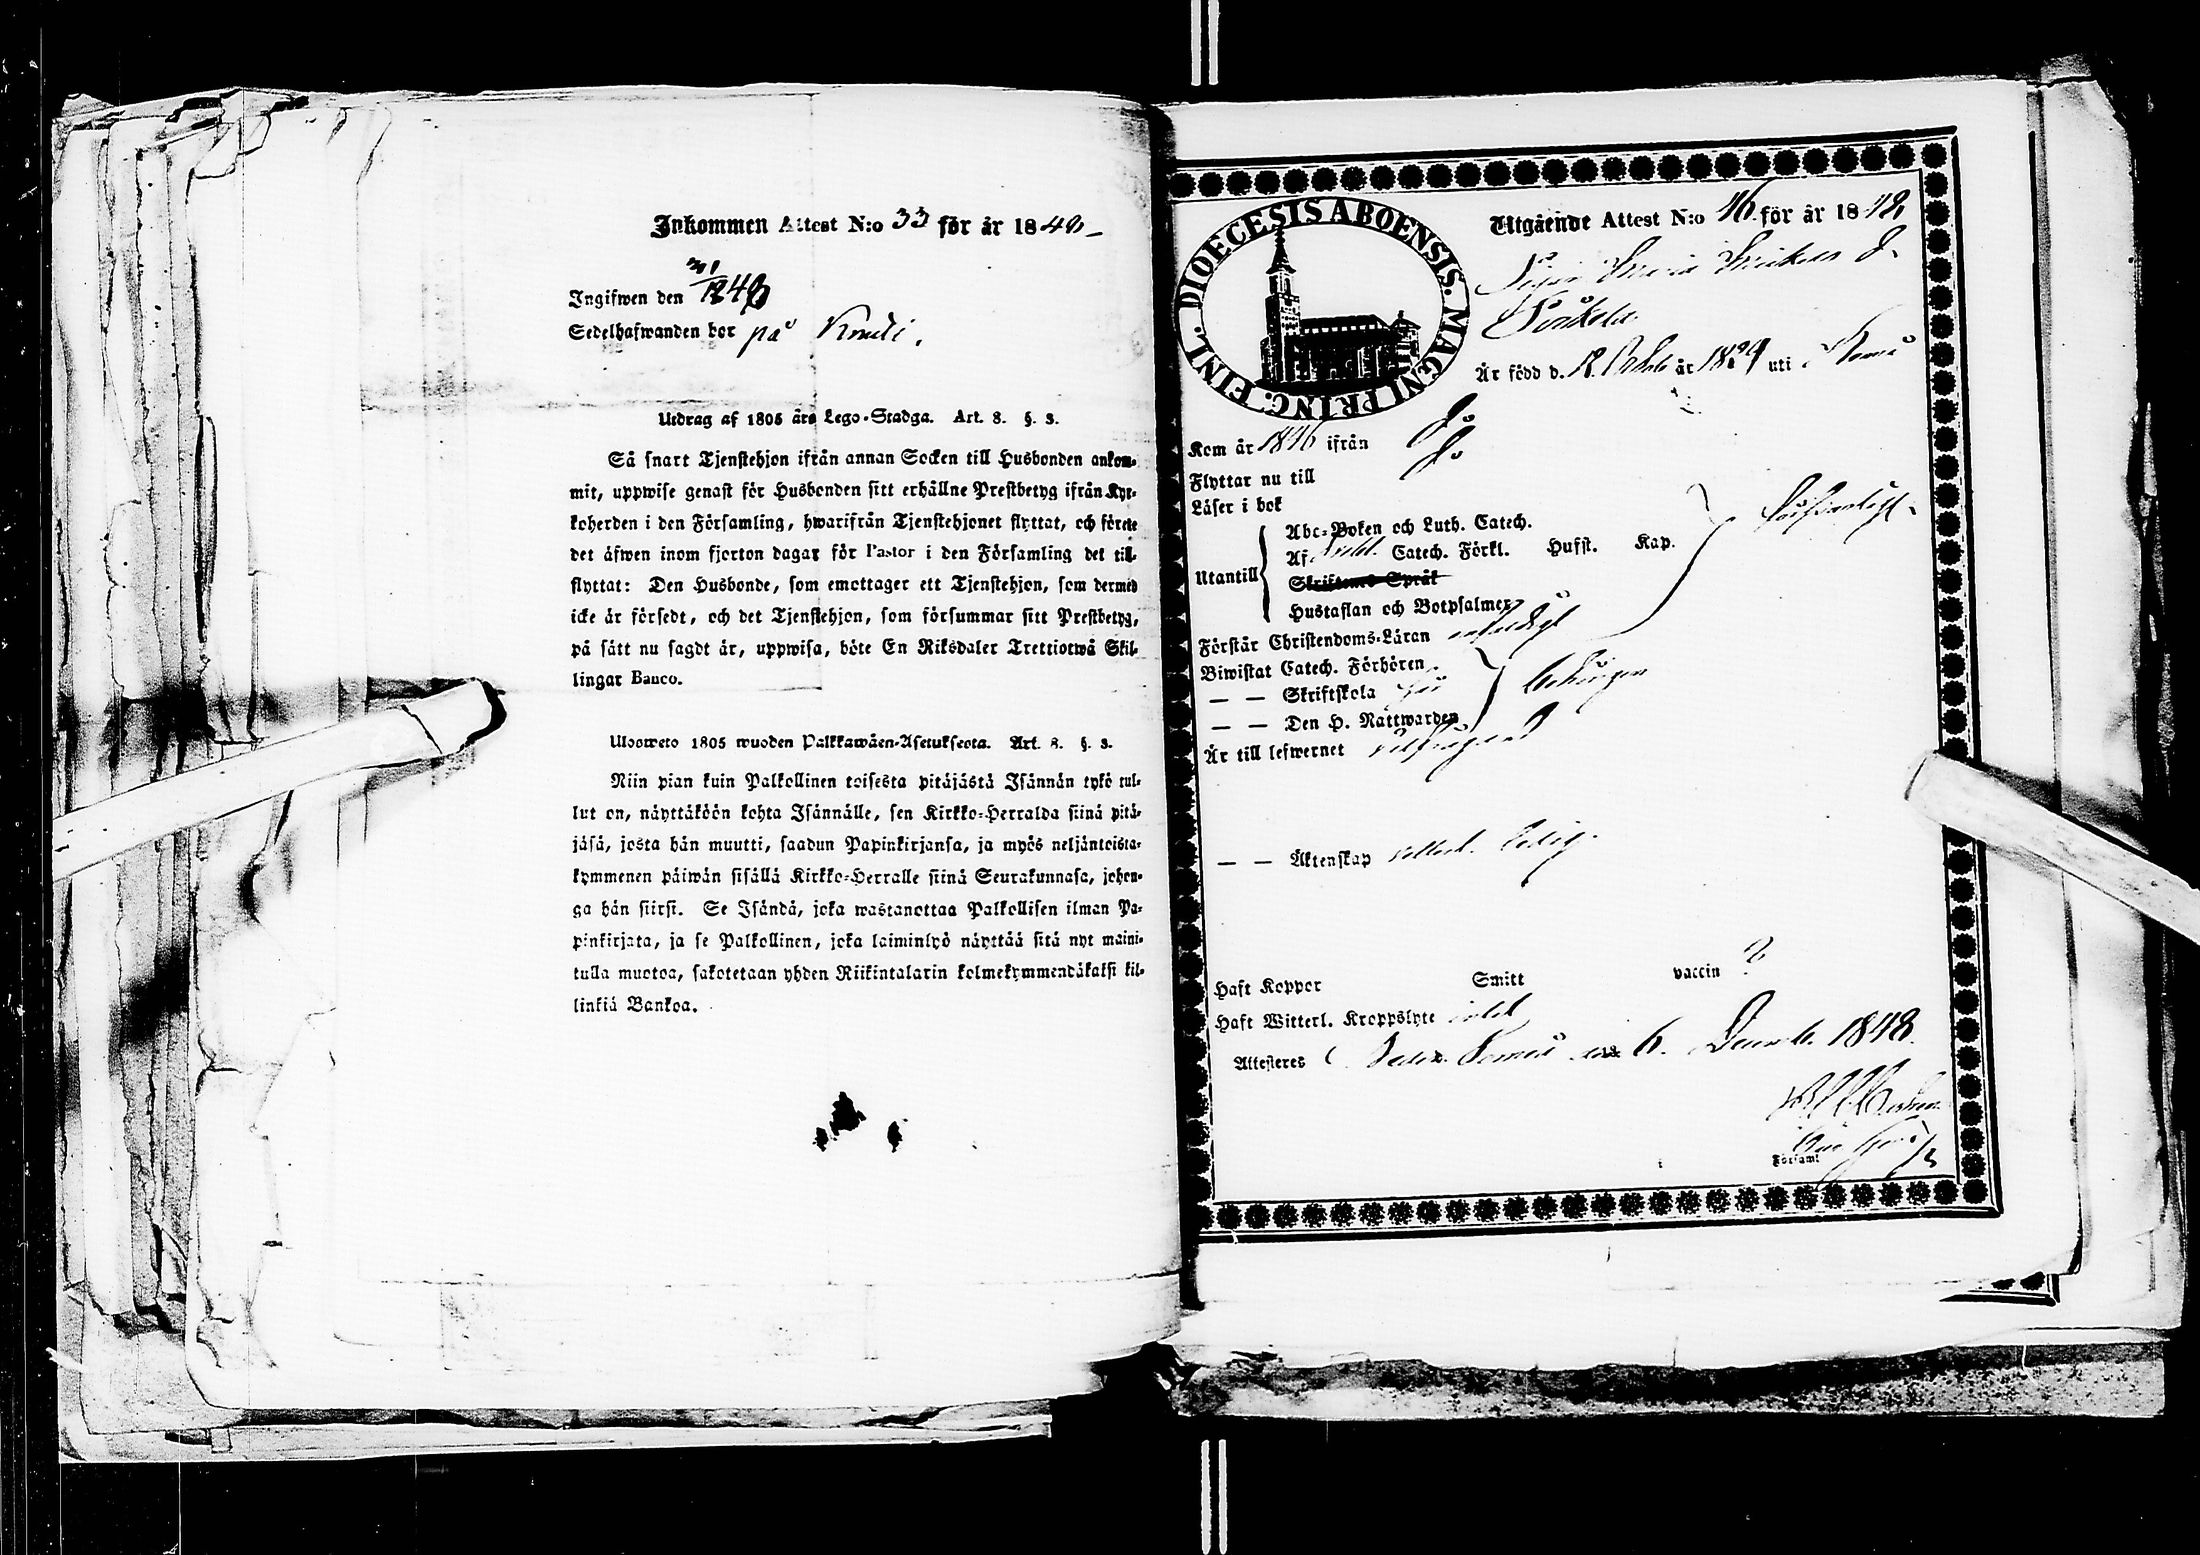 Inkommen Attest N:o 33 för år 1848
Ingifwen den 31/12 48
Sedelhafwanden bor på
Utdrag af 1805 års Lego-Stadga. Art. 8. §. 3.
Så snart Tjenstehjon ifrån annan Socken till Husbonden ankom-
mit, uppwise genast för Husbonden sitt erhållne Prestbetyg ifrån Kyr-
koherden i den Församling, hwarifrån Tjenstehjonet flyttat, och förete
det äfwen inom fjorton dagar för Pastor i den Församling det till-
flyttat: Den Husbonde, som emottager ett Tjenstehjon, som dermed
icke är försedt, och det Tjenstehjon, som försummar sitt Prestbetyg,
på sätt nu sagdt är, uppwisa, böte En Riksdaler Trettiotwå Skil-
lingar Banco.
Uloswето 1805 wuoden Palkkawäen-Asetuksesta. Art. 8. §. 3.
Niin pian kuin Palkollinen toisesta pitäjästä Isännän tykö tul-
lut on, näyttäköön kohta Isännälle, sen Kirkko-Herralda siinä pitä-
jäsä, josta hän muutti, saadun Papinkirjansa, ja myös neljäntoista-
kymmenen päiwän sisällä Kirkko-Herralle siinä Seurakunnasa, johon-
ga hän siirsi. Se Isändä, joka wastanottaa Palkollisen ilman Pa-
pinkirjata, ja se Palkollinen, joka laiminlyö näyttää sitä nyt maini-
tulla muotoa, sakotetaan yhden Riikintalarin kolmekymmendäkaksi kil-
linkiä Bankoa.
DIOECESIS ABOENSIS. MAGNI PRINC. FINL.
Utgående Attest N:o 46 för år 1848
Maria
Är född d. 12 Octob år 1829 uti
Kom år 1846 ifrån
Flyttar nu till
Läser i bok
Abc-Boken och Luth. Catech.
Utantill Af Catech. Förkl. Husst. Kap. försvarligt
Skriftenes Språk
Hustaflan och Botpsalmer
Förstår Christendoms-Läran enfaldigt
Biwistat Catech. Förhören
— — Skriftskola behörigen
— — Den H. Nattwarden
Är till lefwernet välfrägdad
— — Äktenskap ledig
Haft Koppor Smitt vaccin
Haft Witterl. Kroppslyte intet
Attesteres den 6. Decemb. 1848.
Församl